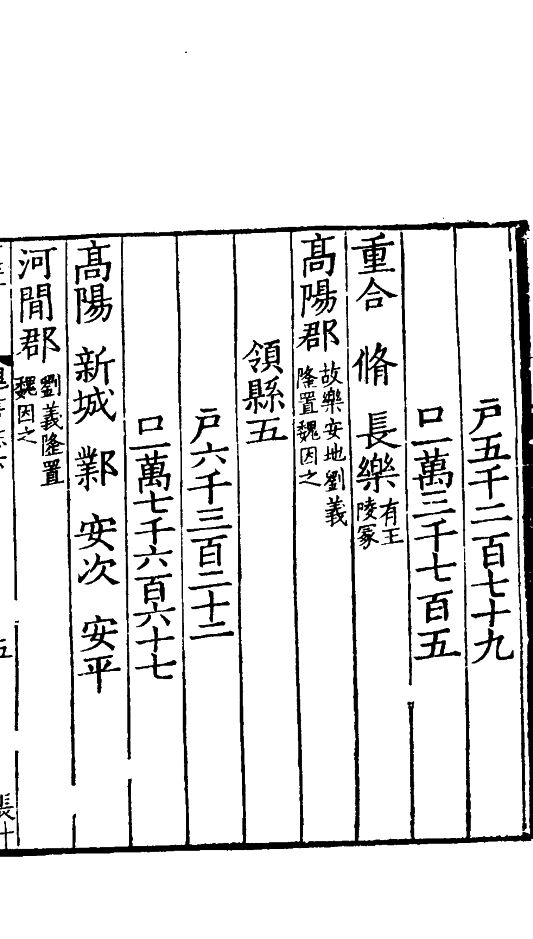 戶五千二百七十九
口一萬三千七百五
重合 脩 長樂有王陵冢
髙陽郡故樂安地劉義隆置魏因之
領縣五
戶六千三百二十二
口一萬七千六百六十七
髙陽 新城 鄴 安次 安平
河閒郡劉義隆置魏因之
五